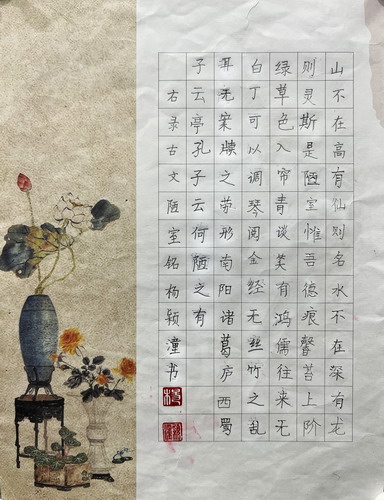 山不在高有仙则名水不在深有龙
则灵斯是陋室惟吾德痕馨苔上阶
绿草色入帘青谈笑有鸿儒往来无
白丁可以调琴阅金经无丝竹之乱
耳无案牍之劳形南阳诸葛庐西蜀
子云亭孔子云何陋之有
右录古文陋室铭杨颖潼书